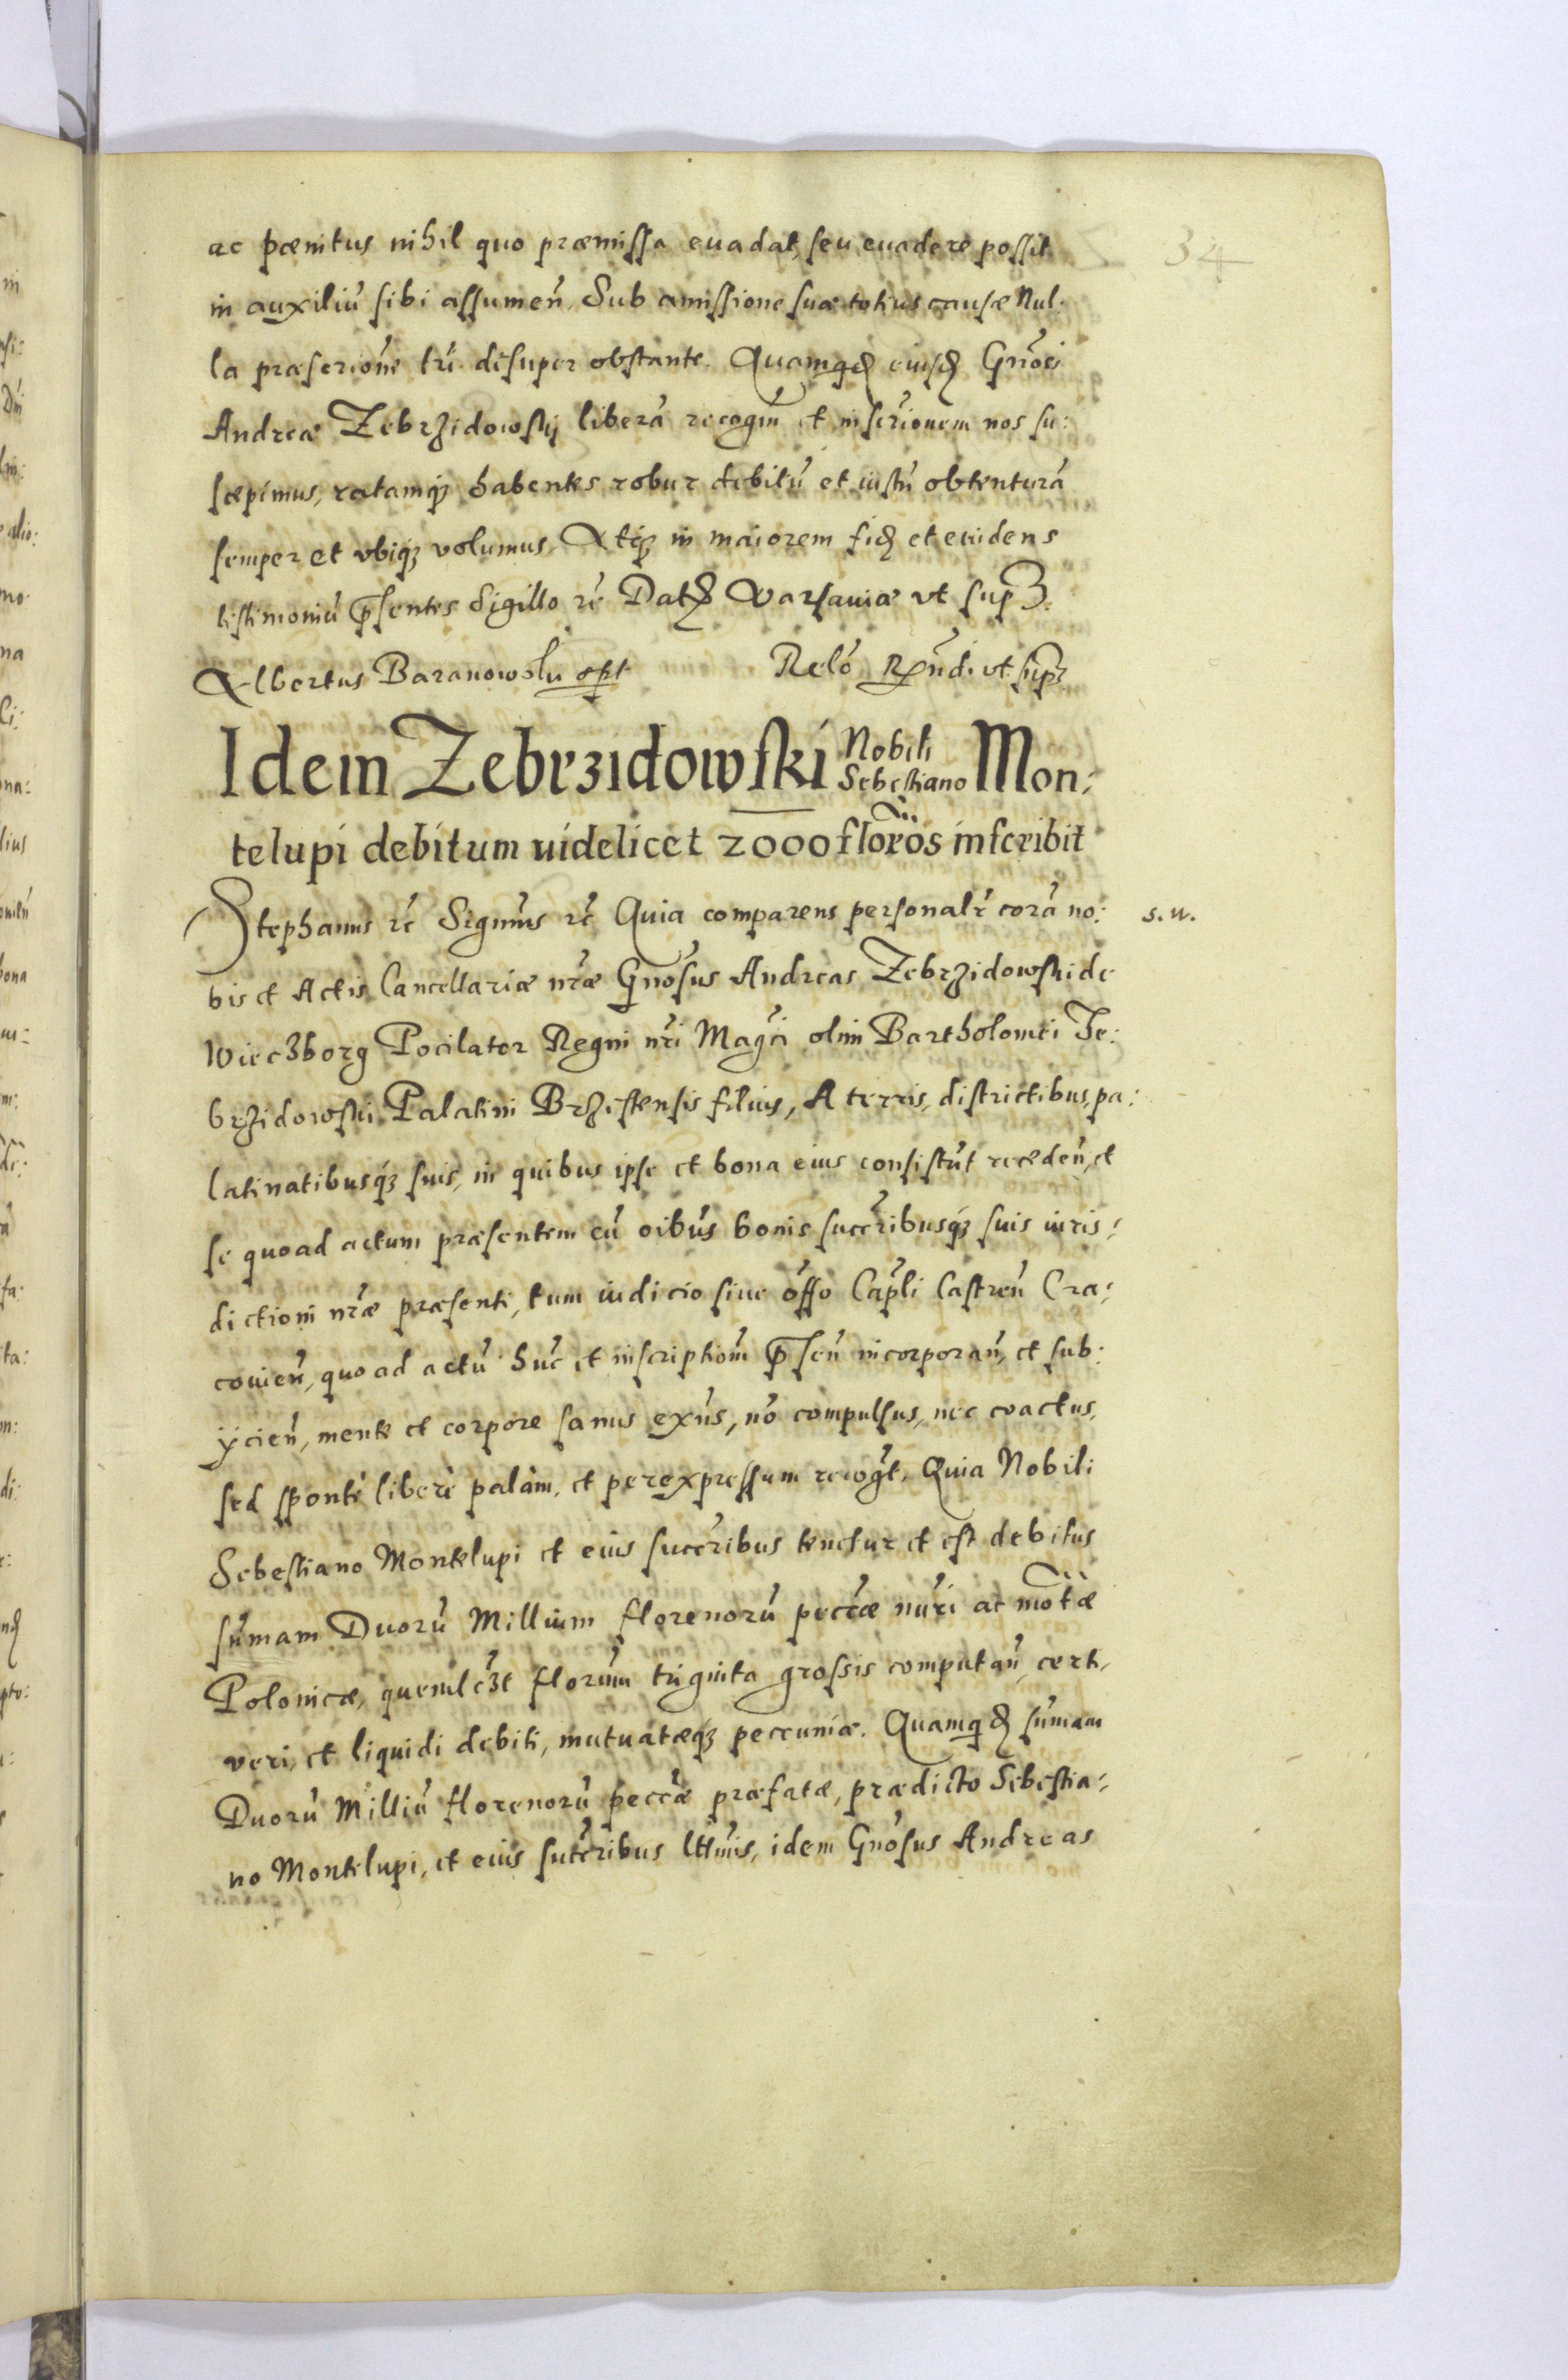 34
ac pœnitus nihil quo præmissa euadat, seu euadere possit
in auxiliũ sibi assumeñ, Sub amissione suæ totius causæ Nul:
la præscrione tri desuper obstante. Quamqd eiusd Gñosi
Andreæ Zebrzidowskÿ liberã recogñ et inscrionem nos su:
scepimus, ratamqꝫ habentes robur debitũ et iustũ obtenturã
semper et vbiqꝫ volumus, Atqꝫ in maiorem fid et euidens
testimoniũ p̃sentes Sigillo rẽ Datꝫ Varsauiæ vt supꝫ
Albertus Baranowski spt Relõ Rndi vt supꝫ
Idem Zebrzidowski Nobili Sebestiano Mon:
telupi debitum uidelicet 2000 floros inscribit
Stephanus rẽ Signus rẽ Quia comparens personalr corã no: s. w.
bis et Actis Cancellariæ nræ Gnosus Andreas Zebrzidowski de
Wieczborg Pocilator Regni nri Magci olim Bartholomei Ze:
brzidowski Palatini Brzestensis filius, A terris, districtibus, pa:
latinatibusqꝫ suis, in quibus ipse et bona eius consistũt recedeñ, et
se quoad actum præsentem cũ oibus bonis succribusqꝫ suis iuris:
dictioni nræ præsenti, tum iudicio siue offo Capli Castreñ Cra:
couieñ, quoad actũ hũc et inscriptiom p̃señ incorporañ, et sub:
ÿcieñ, mente et corpore sanus exñs, nõ compulsus, nec coactus,
sed spontè liberè palàm, et per expressum recogt. Quia Nobili
Sebestiano Montelupi et eius succribus tenetur et est debitus
sũmam Duorũ Millium florenorũ peccæ nuri ac motæ
Polonicæ, quemlꝫt florinũ triginta grossis computañ, certi,
veri, et liquidi debiti, mutuatæqꝫ peccuniæ. Quamqd sũmam
Duorũ Milliũ florenorũ peccæ præfatæ, prædicto Sebestia:
no Montelupi, et eius succribus lttimis, idem Gnosus Andreas